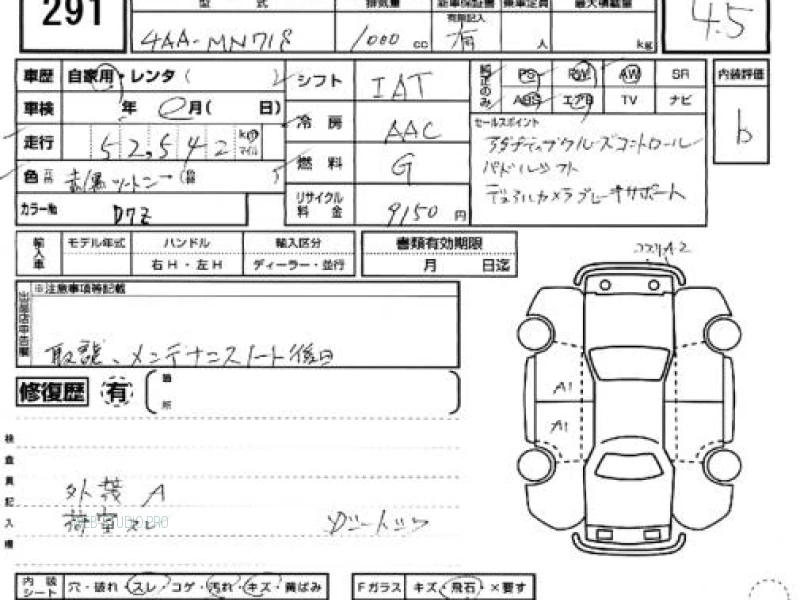 291
型 式
4AA-MN71S
排気量
1000 cc
新車保証書
有限記入
有
乗車定員
人
最大積載量
kg
4.5
車歴 自家用・レンタ(
シフト
IAT
純正のみ
PS PW AW SR
ABS エアB TV ナビ
内装評価
b
車検 年 月( 日)
走行 52,542 km マイル
冷房
AAC
セールスポイント
アダプティブクルーズコントロール
パドルシフト
デュアルカメラブレーキサポート
色 元色 赤/黒ツートン
燃料
G
カラー№ D7Z
リサイクル料金
9150 円
輸入車
モデル年式
ハンドル
右H・左H
輸入区分
ディーラー・並行
書類有効期限
月 日迄
コスリA-2
出品店申告欄
※注意事項等記載
取説、メンテナンスノート後日
修復歴 有
箇所
A1
A1
検査員記入欄
外装 A
荷室スレ
STUDIO.PRO
内装シート 穴・破れ・スレ・コゲ・汚れ・キズ・黄ばみ
Fガラス キズ・飛石・×要す